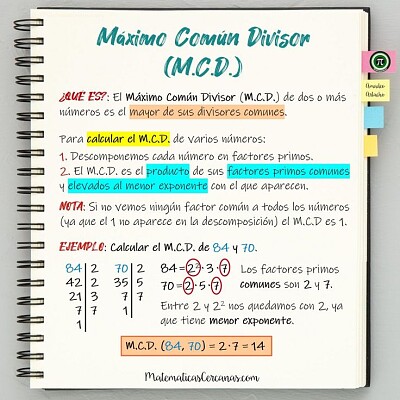 Máximo Común Divisor
(M.C.D.)
Amadeo
Artacho
¿QUÉ ES?: El Máximo Común Divisor (M.C.D.) de dos o más
números es el mayor de sus divisores comunes.
Para calcular el M.C.D. de varios números:
1. Descomponemos cada número en factores primos.
2. El M.C.D. es el producto de sus factores primos comunes
y elevados al menor exponente con el que aparecen.
NOTA: Si no vemos ningún factor común a todos los números
(ya que el 1 no aparece en la descomposición) el M.C.D es 1.
EJEMPLO: Calcular el M.C.D. de 84 y 70.
84 2 70 2 84 = 2² · 3 · 7 Los factores primos
42 2 35 5 70 = 2 · 5 · 7 comunes son 2 y 7.
21 3 7 7
7 7 1 Entre 2 y 2² nos quedamos con 2, ya
1 que tiene menor exponente.
M.C.D. (84, 70) = 2 · 7 = 14
MatematicasCercanas.com